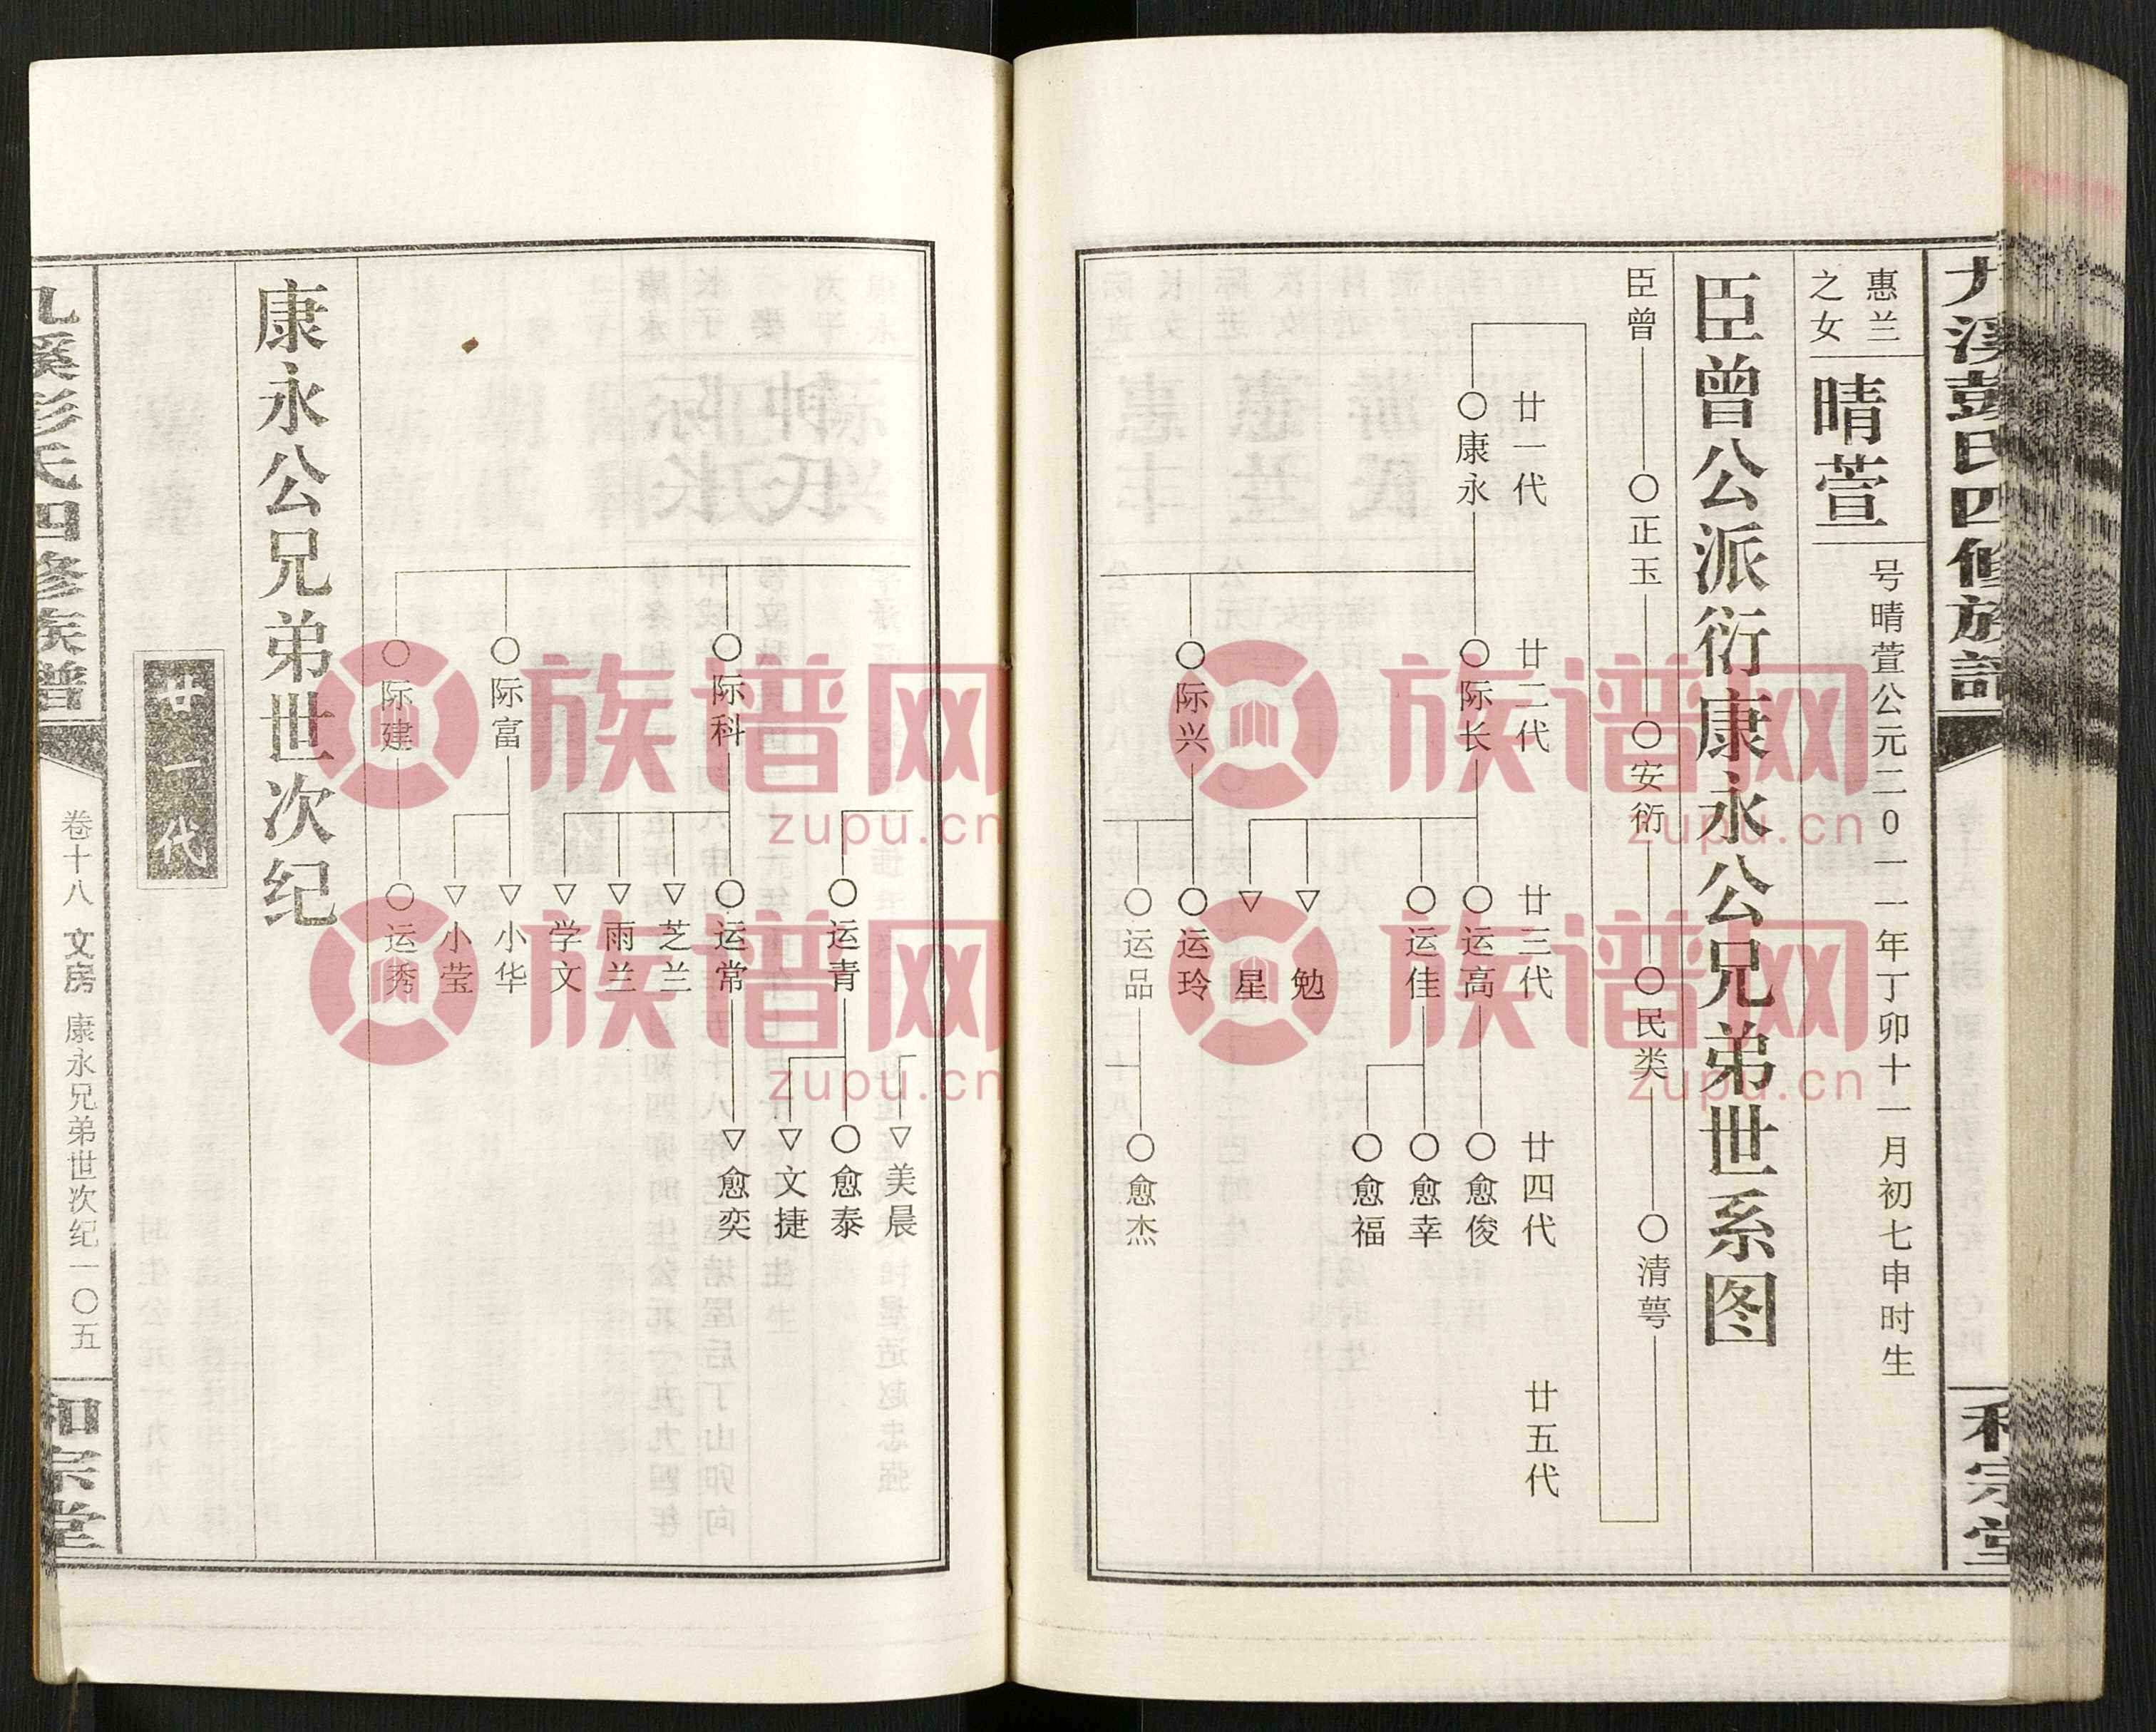 九溪彭氏四修族谱
和宗堂
惠兰
之女
晴萱
号晴萱公元二0一一年丁卯十一月初七申时生
臣曾公派衍康永公兄弟世系图
臣曾
○正玉
○安衍
○民类
○清萼
廿一代
廿二代
廿三代
廿四代
廿五代
○康永
○际长
○运高
○愈俊
○运佳
○愈幸
○愈福
▽勉
▽星
○际兴
○运玲
○运品
○愈杰
▽美晨
○运青
○愈泰
▽文捷
○际科
○运常
▽愈奕
▽芝兰
▽雨兰
▽学文
○际富
▽小华
▽小莹
○际建
○运秀
康永公兄弟世次纪
廿一代
九溪彭氏四修族谱
卷十八 文房 康永兄弟世次纪一〇五
和宗堂
族谱网
zupu.cn
族谱网
zupu.cn
族谱网
zupu.cn
族谱网
zupu.cn